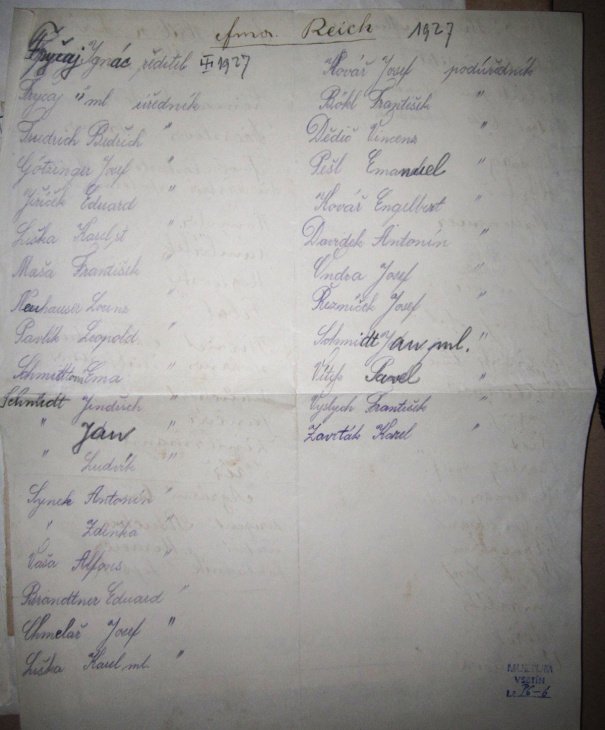 fma. Reich 1927
Fryčaj Ignác ředitel III 1927
Fryčaj " ml úředník
Friedrich Bedřich "
Götzinger Josef "
Jiříček Eduard "
Liška Karel st "
Maša František "
Neuhauser Lorenz "
Pavlík Leopold "
Schmidtová Ema "
Schmidt Jindřich "
" Jan "
" Ludvík "
Synek Antonín "
" Zdenka "
Vaša Alfons "
Brandtner Eduard "
Chmelař Josef "
Liška Karel ml. "
Kovář Josef podúředník
Bökl František "
Dědič Vincenc "
Pešl Emanuel "
Kovář Engelbert "
Davidek Antonín "
Ondra Josef "
Řezníček Josef "
Schmidt Jan ml. "
Pavel "
František "
Karel "
VSETÍN